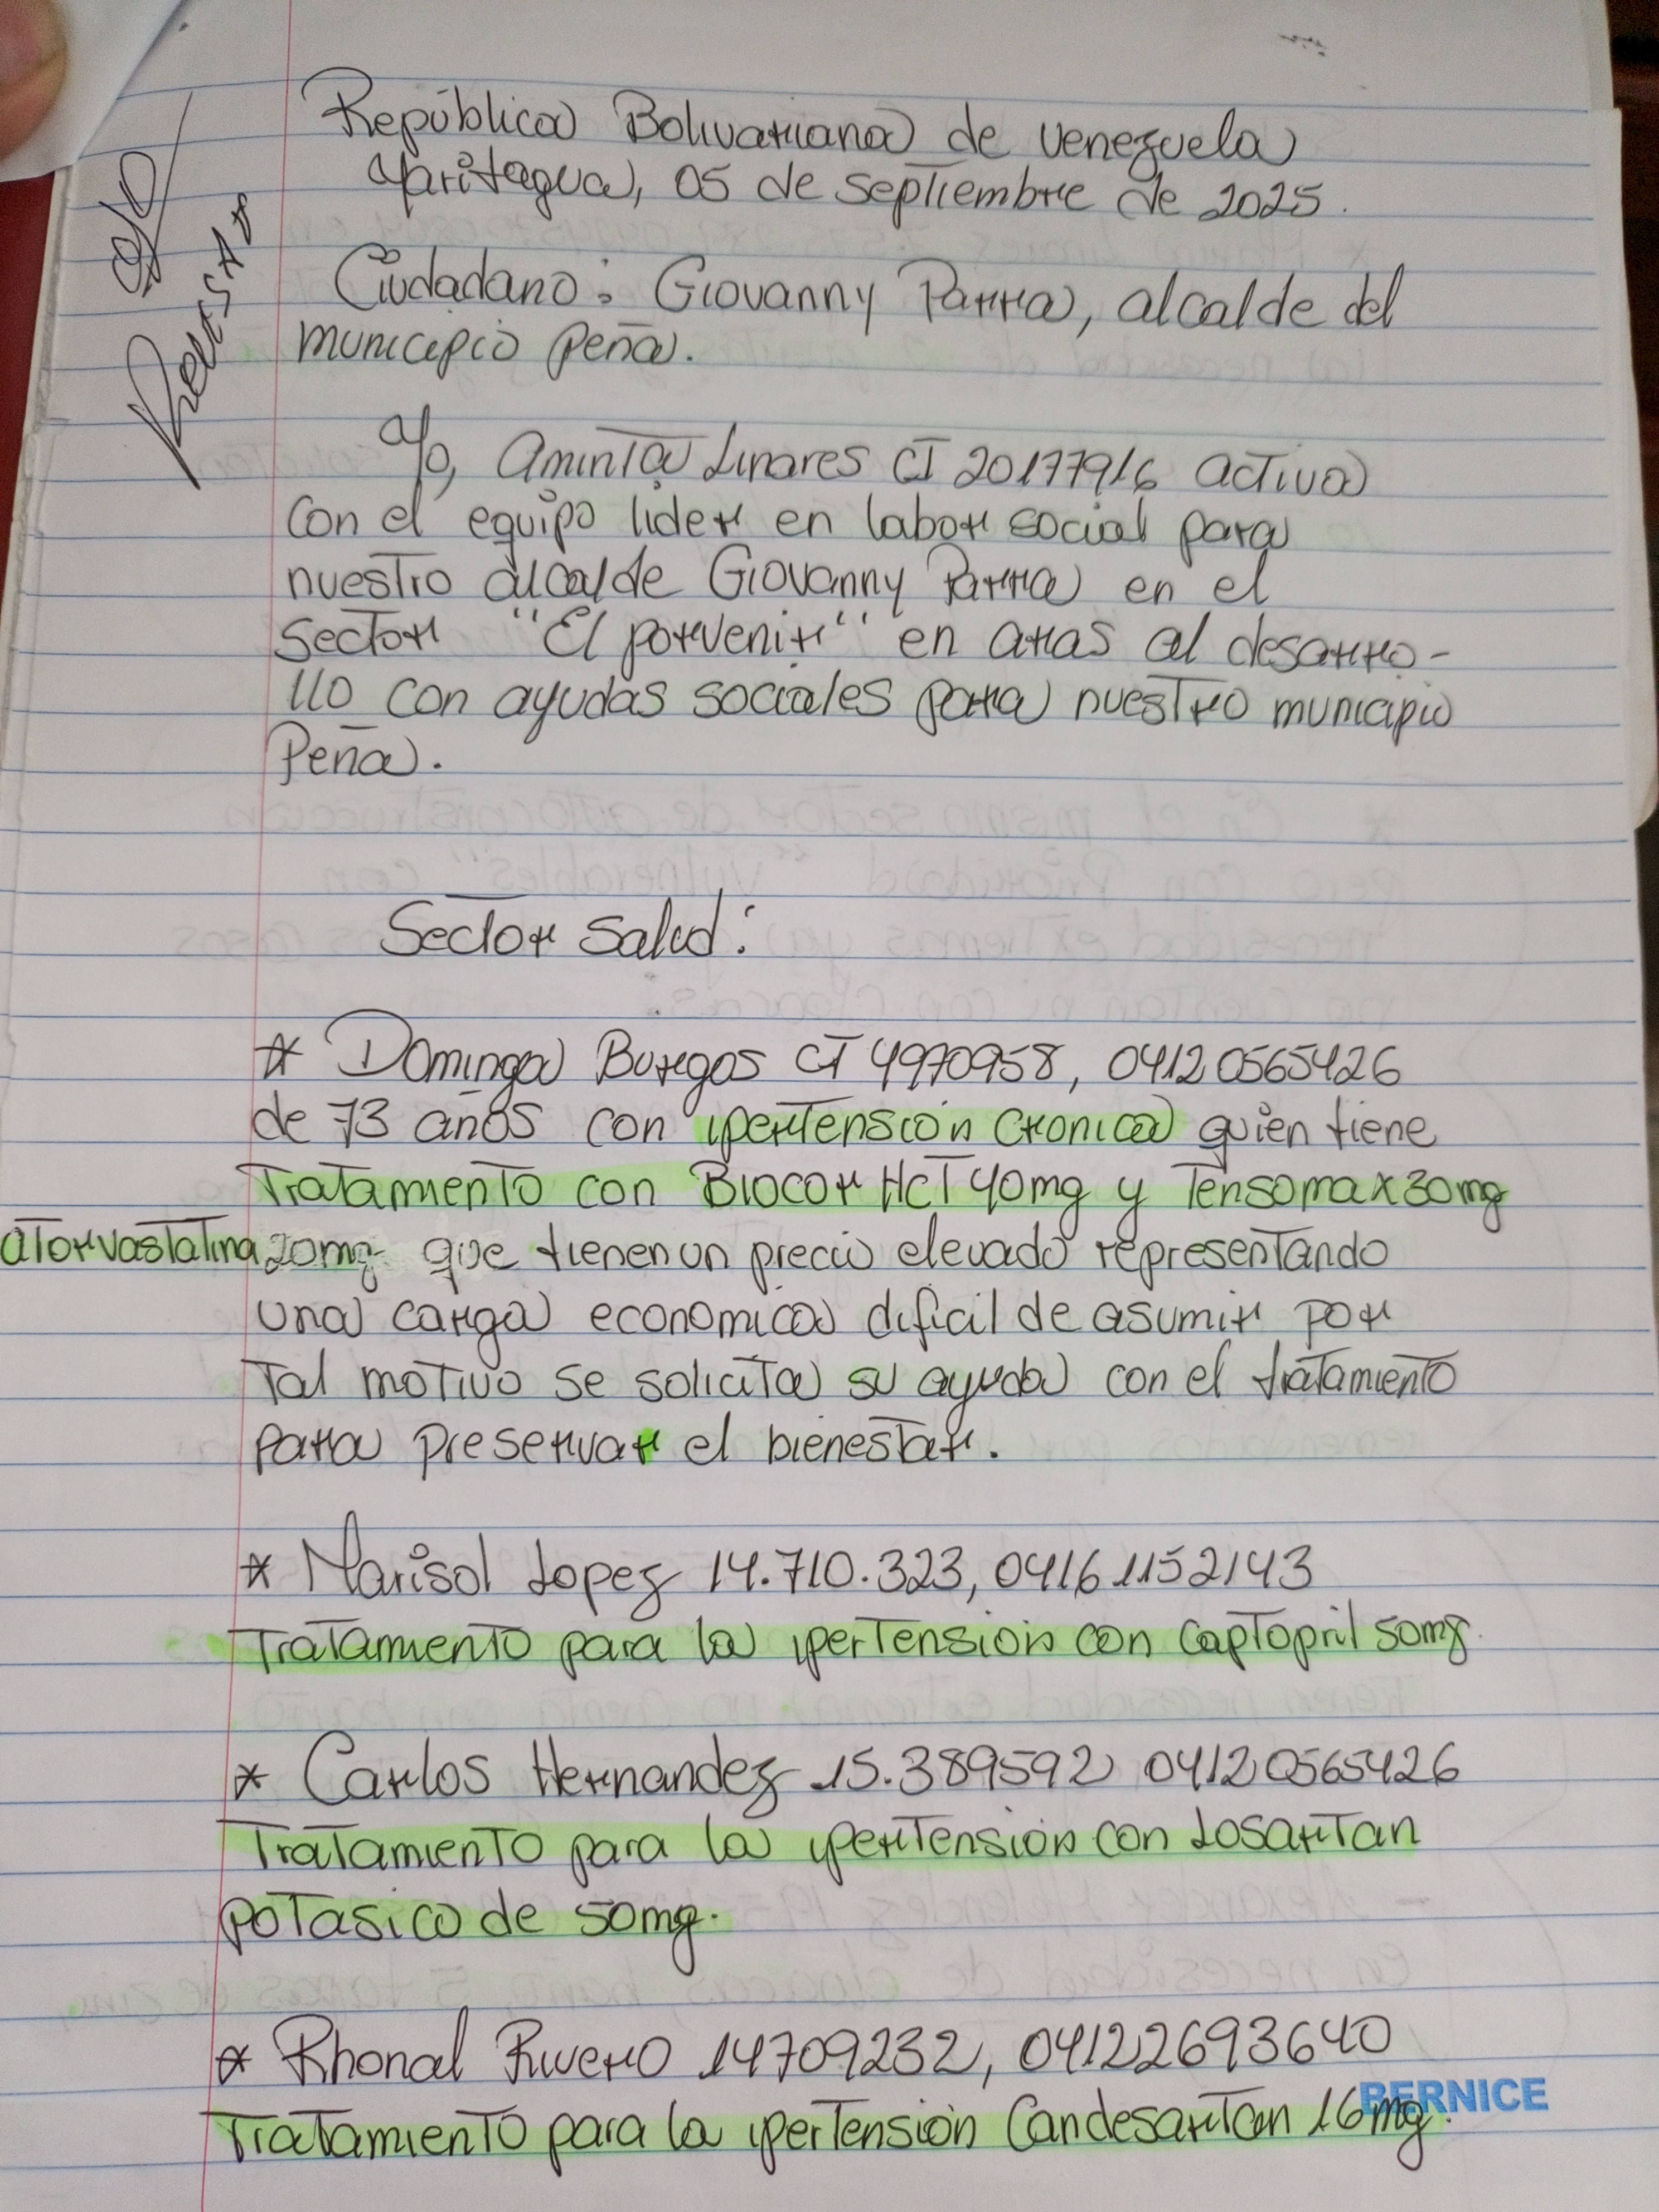 República Bolivariana de Venezuela
Yaritagua, 05 de septiembre de 2025.
Ciudadano: Giovanny Parra, alcalde del
municipio Peña.
Yo, Aminta Linares CI 20177916 activa
con el equipo lider en labor social para
nuestro alcalde Giovanny Parra en el
sector "El porvenir" en aras al desarro-
llo con ayudas sociales para nuestro municipio
Peña.
Sector Salud:
* Dominga Burgos CI 4970958, 04120565426
de 73 años con ipertensión cronica quien tiene
Tratamiento con Biocor HCT 40mg y Tensomax 30mg
atorvastatina 20mg que tienen un precio elevado representando
una carga economica dificil de asumir por
tal motivo se solicita su ayuda con el tratamiento
para preservar el bienestar.
* Marisol Lopez 14.710.323, 04161152143
Tratamiento para la ipertensión con Captopril 50mg.
* Carlos Hernandez 15.389592 04120565426
Tratamiento para la ipertensión con Losartan
potasico de 50mg.
* Rhonal Rivero 14709232, 04122693640
Tratamiento para la ipertensión Candesartan 16mg.
BERNICE